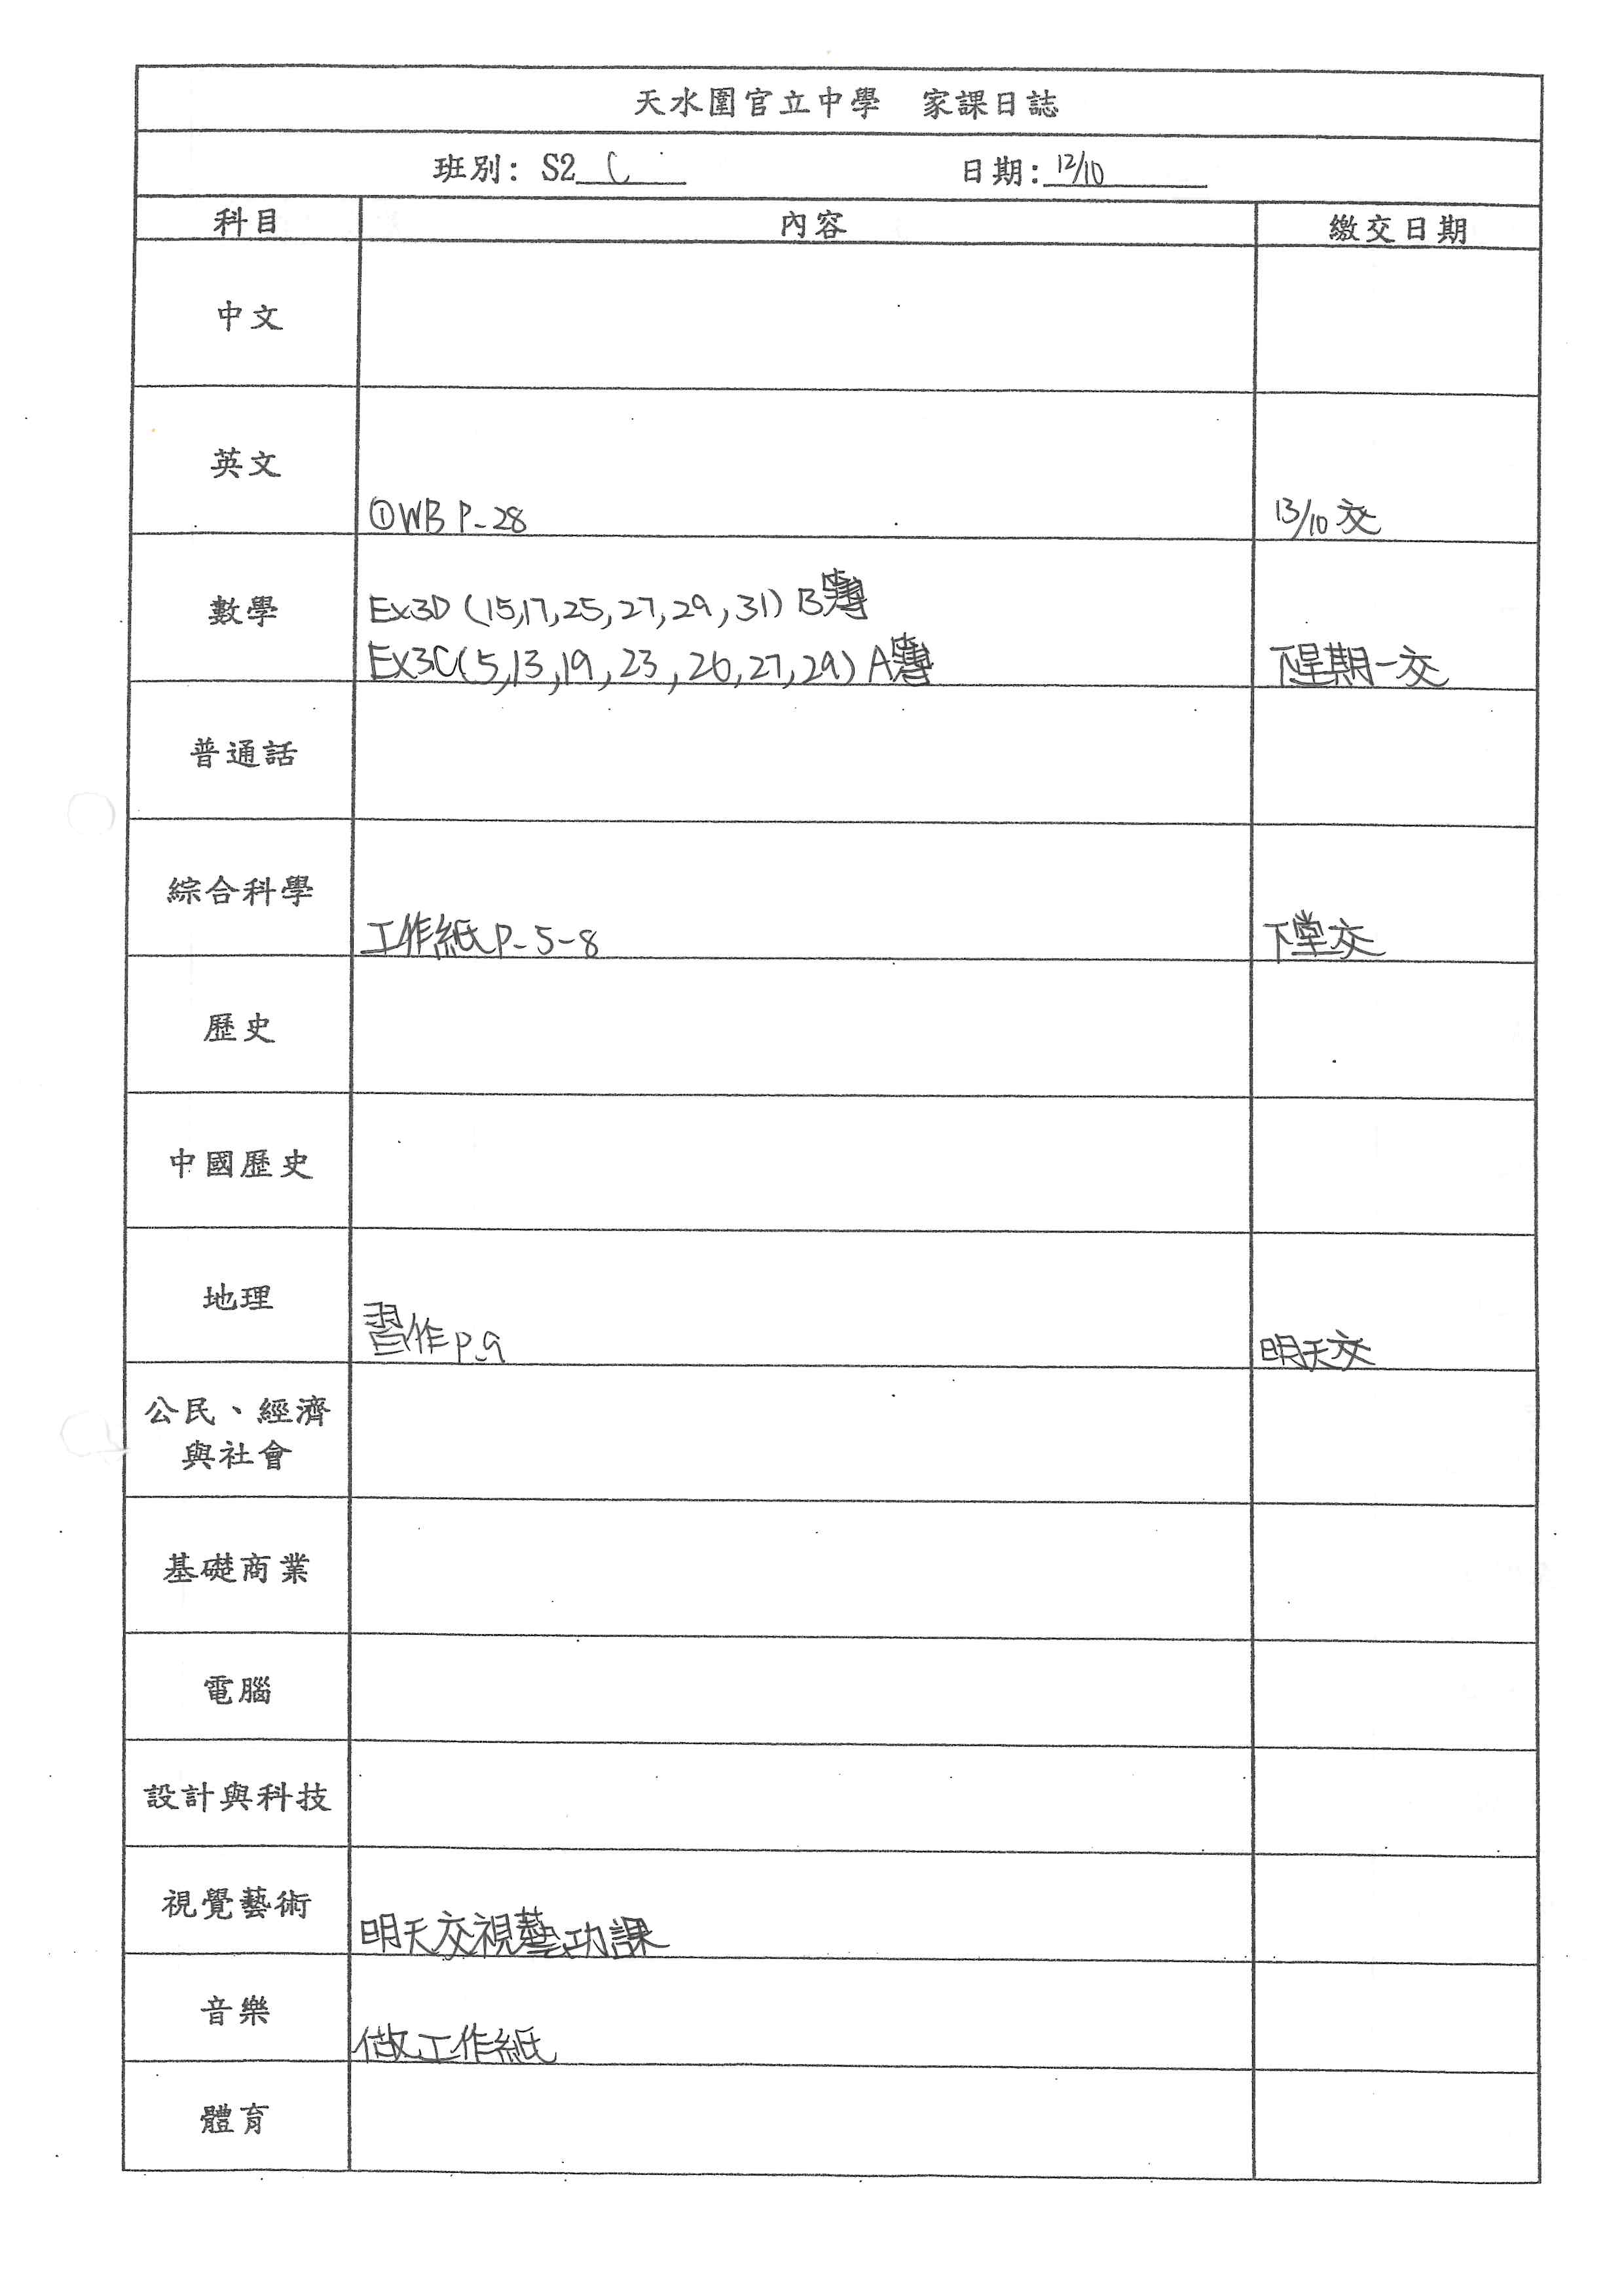 天水圍官立中學 家課日誌
班別: S2 C 日期: 12/10
科目 內容 繳交日期
中文
英文 ①WB P-28 13/10 交
數學
Ex3D (15,17,25,27,29,31) B簿
Ex3C(5,13,19,23,26,27,29) A簿 下星期一交
普通話
綜合科學 工作紙 P-5-8 下堂交
歷史
中國歷史
地理 習作 P.9 明天交
公民、經濟
與社會
基礎商業
電腦
設計與科技
視覺藝術 明天交視藝功課
音樂 做工作紙
體育